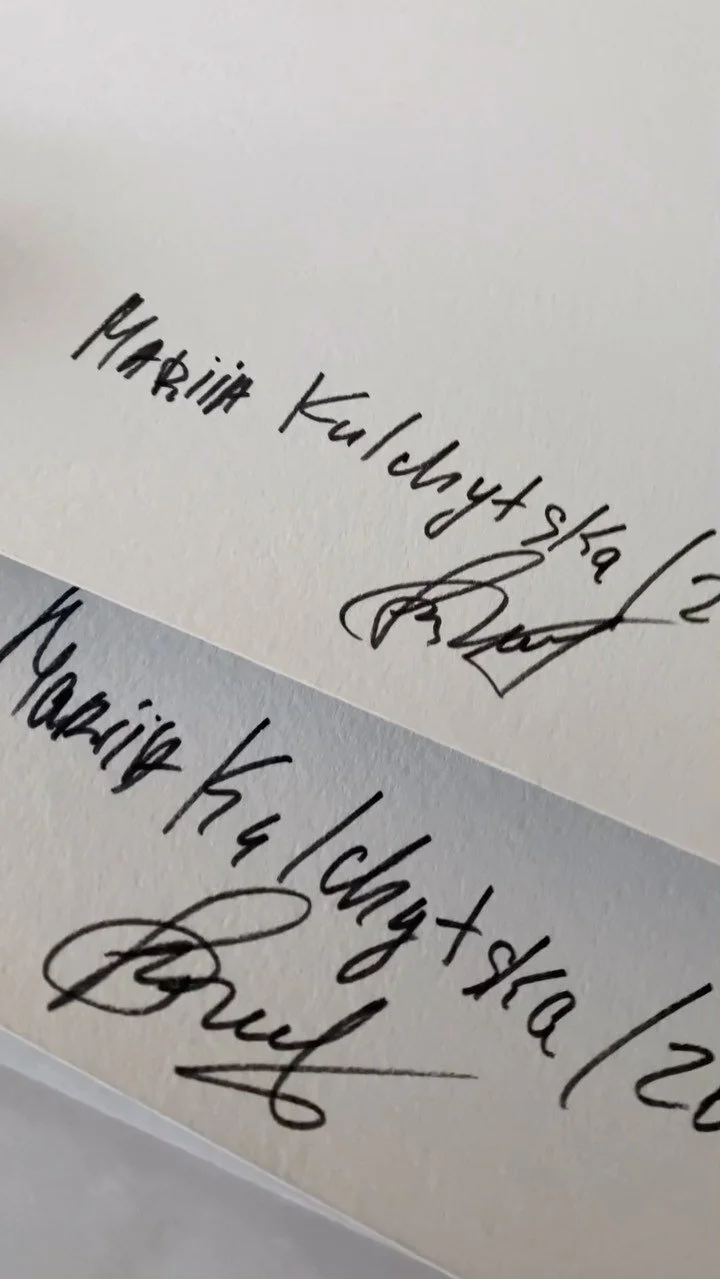 Mariia Kulchytska/2
Mariia Kulchytska/20